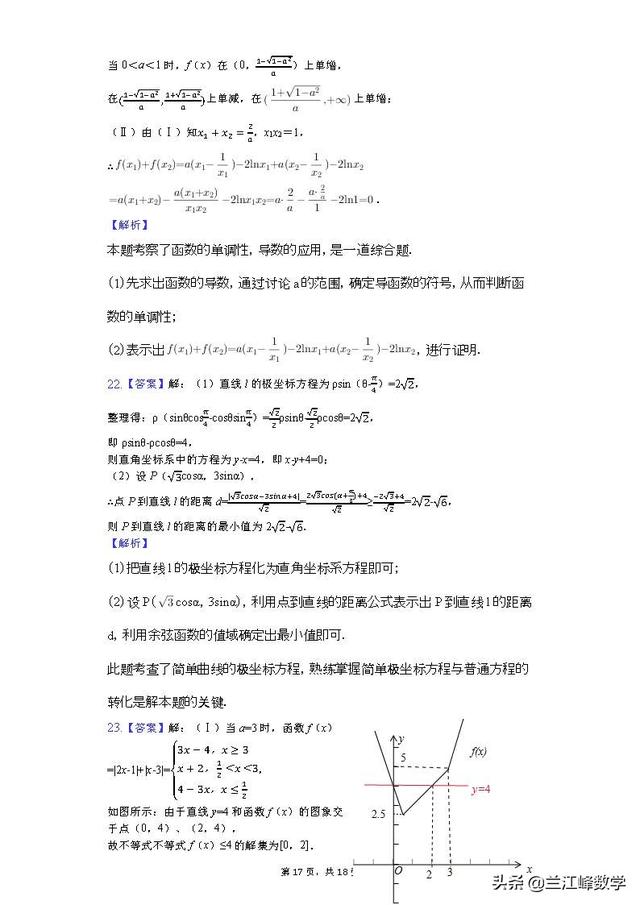 当0<a<1时，f（x）在（0，(1-√(1-a²))/a）上单增，
在((1-√(1-a²))/a, (1+√(1-a²))/a)上单减，在((1+√(1-a²))/a,+∞)上单增；
（Ⅱ）由（Ⅰ）知x₁+x₂=2/a，x₁x₂＝1，
∴f(x₁)+f(x₂)=a(x₁-1/x₁)-2lnx₁+a(x₂-1/x₂)-2lnx₂
=a(x₁+x₂)-a(x₁+x₂)/(x₁x₂)-2lnx₁x₂=a·2/a-(a·2/a)/1-2ln1=0．
【解析】
本题考察了函数的单调性，导数的应用，是一道综合题．
(1)先求出函数的导数，通过讨论a的范围，确定导函数的符号，从而判断函
数的单调性；
(2)表示出f(x₁)+f(x₂)=a(x₁-1/x₁)-2lnx₁+a(x₂-1/x₂)-2lnx₂，进行证明．
22.【答案】解：（1）直线l的极坐标方程为ρsin（θ-π/4）=2√2，
整理得：ρ（sinθcosπ/4-cosθsinπ/4）=√2/2ρsinθ-√2/2ρcosθ=2√2，
即ρsinθ-ρcosθ=4，
则直角坐标系中的方程为y-x=4，即x-y+4=0；
（2）设P（√3cosα，3sinα），
∴点P到直线l的距离d=|√3cosα-3sinα+4|/√2=|2√3cos(α+π/3)+4|/√2≥(-2√3+4)/√2=2√2-√6，
则P到直线l的距离的最小值为2√2-√6．
【解析】
(1)把直线l的极坐标方程化为直角坐标系方程即可；
(2)设P(√3cosα，3sinα)，利用点到直线的距离公式表示出P到直线l的距离
d，利用余弦函数的值域确定出最小值即可．
此题考查了简单曲线的极坐标方程，熟练掌握简单极坐标方程与普通方程的
转化是解本题的关键．
23.【答案】解：（Ⅰ）当a=3时，函数f（x）
=|2x-1|+|x-3|={3x−4，x≥3
x+2，1/2<x<3，
4−3x，x≤1/2
如图所示：由于直线y=4和函数f（x）的图象交
于点（0，4）、（2，4），
故不等式不等式f（x）≤4的解集为[0，2]．
y
f(x)
5
y=4
2.5
O
2
3
x
第17页，共18
头条@兰江峰数学